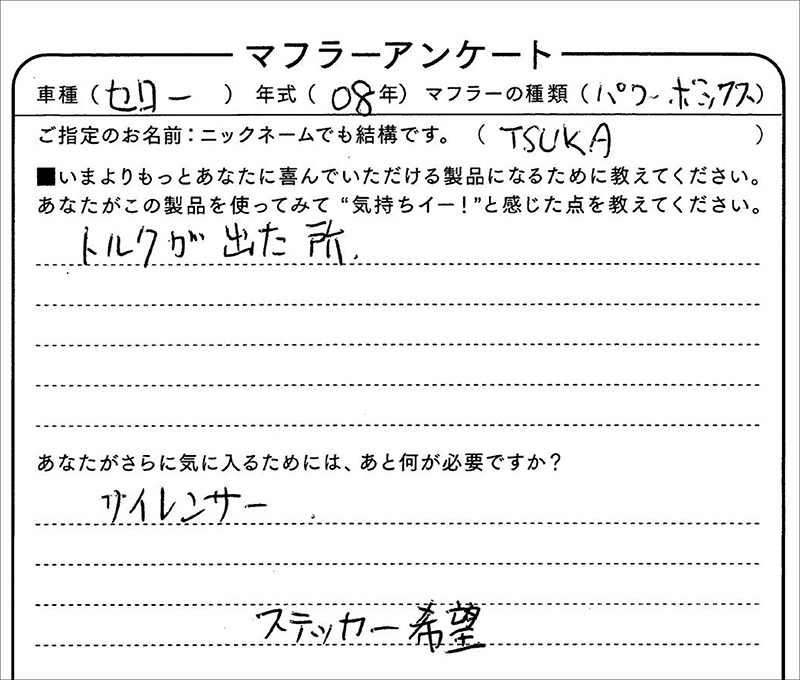 マフラーアンケート
車種（セロー） 年式（08年） マフラーの種類（パワーボックス）
ご指定のお名前：ニックネームでも結構です。（TSUKA）
■いまよりもっとあなたに喜んでいただける製品になるために教えてください。
あなたがこの製品を使ってみて“気持ちイー！”と感じた点を教えてください。
トルクが出た所.
あなたがさらに気に入るためには、あと何が必要ですか？
サイレンサー.
ステッカー希望